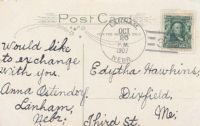 Post Card
LANHAM,
OCT
28
P.M.
1907
NEBR.
Would like
to exchange
with you.
Anna Oitendorf,
Lanham,
Nebr.
Edytha Hawkins,
Dixfield,
Me.
Third St.